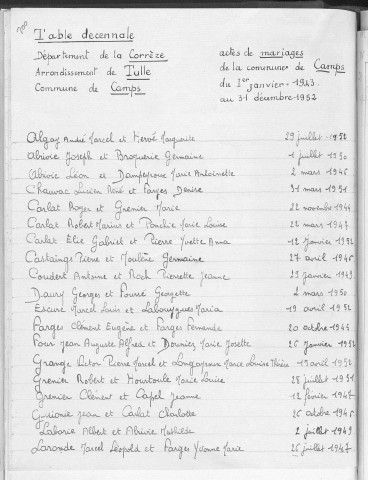 Table decennale
Département de la Corrèze
Arrondissement de Tulle
Commune de Camps
actes de mariages
de la commune de Camps
du 1er janvier 1943
au 31 décembre 1952
Algay André Marcel et Hervé Marguerite 29 juillet 1952
Alrivie Joseph et Broquerie Germaine 1 juillet 1950
Alrivie Léon et Dampeyroux Marie Antoinette 2 mars 1946
Chauvac Lucien René et Farges Denise 31 mars 1951
Carlat Roger et Grenier Marie 22 novembre 1944
Carlat Robert Marius et Ponchie Marie Louise 22 mars 1947
Carlat Élie Gabriel et Pierre Yvette Anna 12 Janvier 1952
Castaings Pierre et Moulène Germaine 27 avril 1946
Coudert Antoine et Roch Pierrette Jeanne 29 janvier 1949
Daury Georges et Fourré Georgette 2 mars 1950
Escure Marcel Louis et Laborygues Maria 19 avril 1952
Farges Clément Eugène et Farges Fernande 20 octobre 1945
Four Jean Auguste Alfred et Dournier Marie Josette 26 janvier 1952
Grange Pierre Marcel et Longayroux Marie Louise Thérèse 19 avril 1952
Grenier Robert et Mourtoule Marie Louise 28 juillet 1951
Grenier Clément et Capel Jeanne 12 février 1947
Guirione Jean et Carlat Charlotte 26 octobre 1946
Laborie Albert et Alrivie Mathilde 2 juillet 1949
Laronde Marcel Léopold et Farges Yvonne Marie 26 juillet 1947